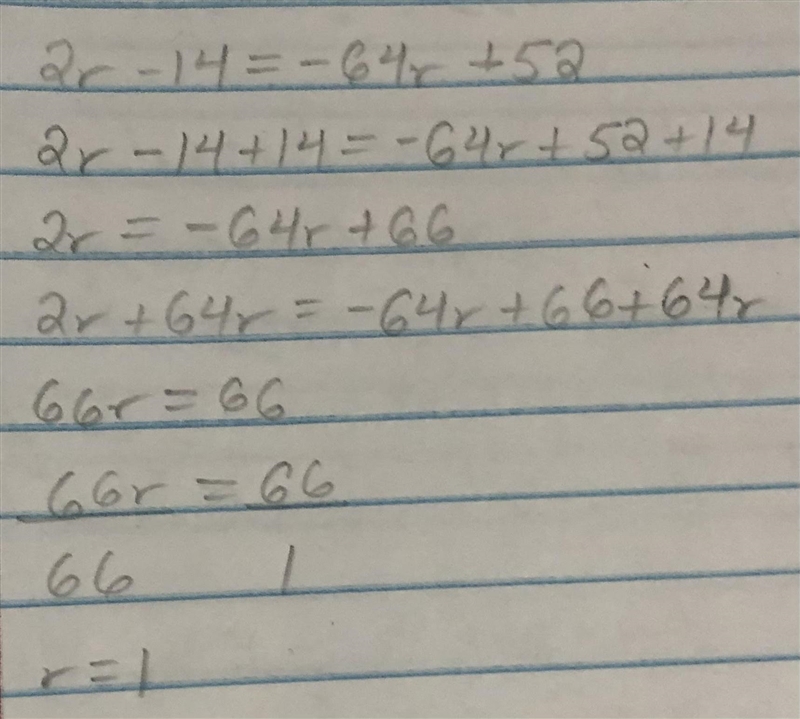 2r - 14 = -64r + 52
2r - 14 + 14 = -64r + 52 + 14
2r = -64r + 66
2r + 64r = -64r + 66 + 64r
66r = 66
66r = 66
66 1
r = 1